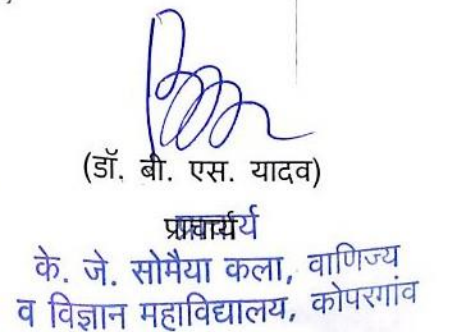 (डॉ. बी. एस. यादव)
प्राचार्य
प्राचार्य
के. जे. सोमैया कला, वाणिज्य
व विज्ञान महाविद्यालय, कोपरगांव